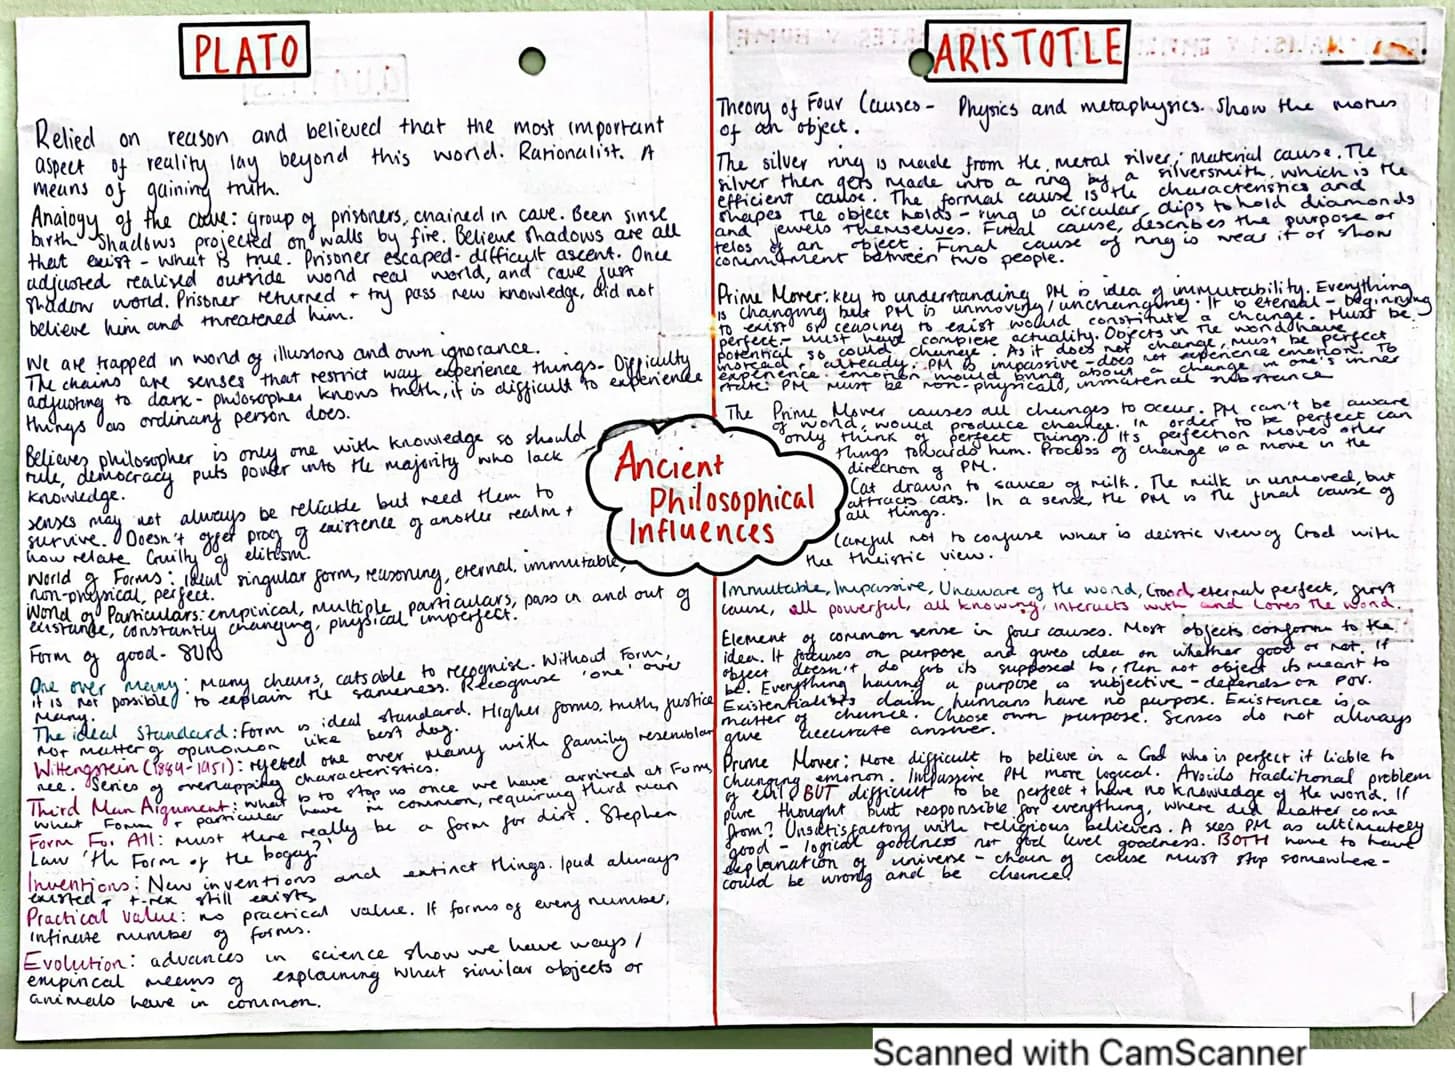 PLATO
Relied on reason and believed that the most important
aspect of reality lay beyond this world. Rationalist. A
means of gaining truth.
Analogy of the cave: group of prisoners, chained in cave. Been sinse
birth. Shadows projected on walls by fire. Believe shadows are all
that exist - what is true. Prisoner escaped - difficult ascent. Once
adjusted realised outside world real world, and cave just
shadow world. Prisoner returned + try pass new knowledge, did not
believe him and threatened him.
We are trapped in world of illusions and own ignorance.
The chains are senses that restrict way experience things. Difficulty
adjusting to dark - philosopher knows truth, it is difficult to experience
things as ordinary person does.
Believes philosopher is only one with knowledge so should
rule, democracy puts power into the majority who lack
knowledge.
senses may not always be reliable but need them to
survive. Doesn't offer proof of existence of another realm +
how relate. Guilty of elitism.
World of Forms: ideal singular form, reasoning, eternal, immutable,
non-physical, perfect.
World of Particulars: empirical, multiple particulars, pass in and out of
existance, constantly changing, physical imperfect.
Form of good - SUN
One over many: Many chairs, cats able to recognise. Without Form,
it is not possible to explain the sameness. Recognise 'one' over
many.
The ideal Standard: Form is ideal standard. Higher forms, truth, justice
not matter of opinion like best dog.
Wittengstein (1889-1951): rejected one over many with family resembla
nce. Series of overlapping characteristics.
Third Man Argument: what is to stop us once we have arrived at Form
what Form + particular have in common, requiring third man
Form For All: must there really be a form for dirt. Stephen
Law 'the Form of the bogey?'
Inventions: New inventions and extinct things. Ipad always
existed + t-rex still exists
Practical value: no practical value. If forms of every number,
infinite number of forms.
Evolution: advances in science show we have ways /
empirical means of explaining what similar objects or
animals have in common.
Ancient
Philosophical
Influences
ARISTOTLE
Theory of Four Causes - Physics and metaphysics. Show the motives
of an object.
The silver ring is made from the metal silver; material cause. The
silver then gets made into a ring by a silversmith, which is the
efficient cause. The formal cause is the characteristics and
shapes the object holds - ring is circular, clips to hold diamonds
and jewels themselves. Final cause, describes the purpose or
telos of an object. Final cause of ring is wear it or show
commitment between two people.
Prime Mover: key to understanding PM is idea of immutability. Everything
is changing but PM is unmoving/unchanging. It is eternal - beginning
to exist or ceasing to exist would constitute a change. Must be
perfect - must have complete actuality. Objects in the world have
potential so could change. As it does not change, must be perfect
already. PM is impassive - does not experience emotion. To
experience emotion would bring about a change in one's inner
state. PM must be non-physical, immaterial substance
The Prime Mover causes all changes to occur. PM can't be aware
of world, would produce change. In order to be perfect can
only think of perfect things. Its perfection moves other
things towards him. Process of change is a move in the
direction of PM.
Cat drawn to sauce of milk. The milk in unmoved, but
attracts cats. In a sense, the PM is the final cause of
all things.
Careful not to confuse what is deistic view of God with
the theistic view.
Immutable, Impassive, Unaware of the world, Good, eternal perfect, first
cause, all powerful, all knowing, interacts with and Loves the world.
Element of common sense in four causes. Most objects conform to the
idea. It focuses on purpose and gives idea on whether good or not. If
object doesn't do job its supposed to, then not object its meant to
be. Everything having a purpose is subjective - depends on POV.
Existentialists claim humans have no purpose. Existence is a
matter of chance. Choose own purpose. Senses do not always
give accurate answer.
Prime Mover: More difficult to believe in a God who is perfect if liable to
changing emotion. Impassive PM more logical. Avoids traditional problem
of evil BUT difficult to be perfect + have no knowledge of the world. If
pure thought but responsible for everything, where did matter come
from? Unsatisfactory with religious believers. A sees PM as ultimately
good - logical goodness not god level goodness. BOTH have to have
explanation of universe - chain of cause must stop somewhere -
could be wrong and be chance!
Scanned with CamScanner